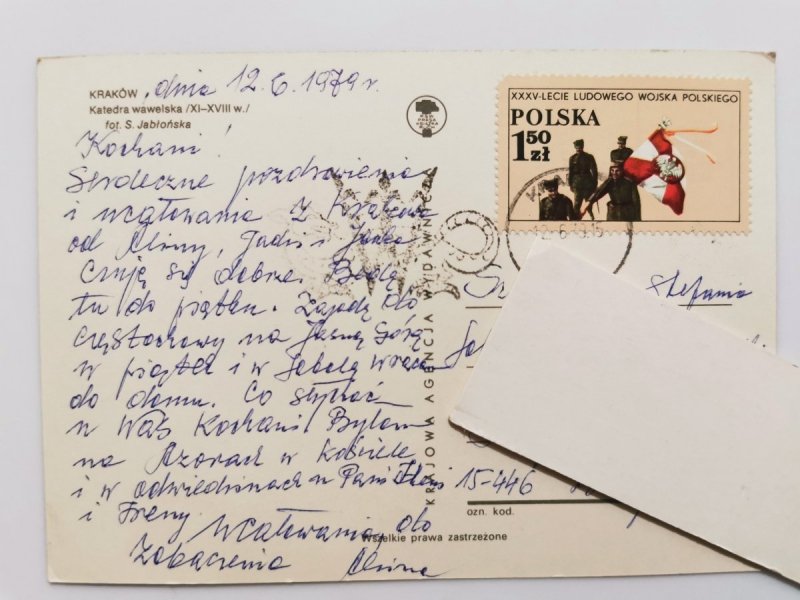 KRAKÓW, dnia 12.6.1979 r.
Katedra wawelska /XI–XVIII w./
fot. S. Jabłońska
Kochani!
Serdeczne pozdrowienia
i ucałowania z Krakowa
od Aliny, Jadzi i Janka
Czuję się dobrze. Będę
tu do piątku. Zajadę do
Częstochowy na Jasną Górę
w piątek i w Sobotę wracam
do domu. Co słychać
u Was Kochani. Byłam
na Azorach w Kościele
i w odwiedzinach u Pani
i Ireny
Ucałowania, do
Zobaczenia Alina
KRAJOWA AGENCJA WYDAWNICZA
Wszelkie prawa zastrzeżone
XXXV-LECIE LUDOWEGO WOJSKA POLSKIEGO
POLSKA
1.50 zł
Stefania
15-446
ozn. kod.